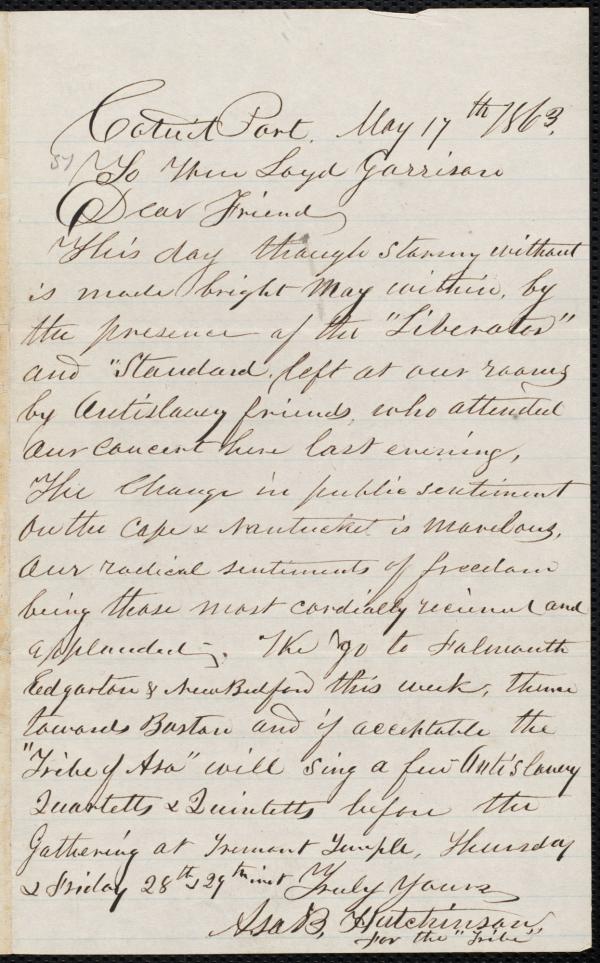 Cotuit Port. May 17th 1863.
To Wm Loyd Garrison
Dear Friend
This day though stormy without
is made bright May within, by
the presence of the "Liberator"
and "Standard, left at our rooms
by Antislavery friends, who attended
our concert here last evening,
The Change in public sentiment
on the Cape & Nantucket is marvelous,
our radical sentiments of freedom
being those most cordially recieved and
applauded. We go to Falmouth
Edgarton & New Bedford this week, thence
towards Boston and if acceptable the
"Tribe of Asa" will sing a few Antislavery
Quartetts & Quintetts before the
Gathering at Tremont Temple, Thursday
& Friday 28th & 29th inst Truly Yours
Asa B. Hutchinson,
For the "Tribe"